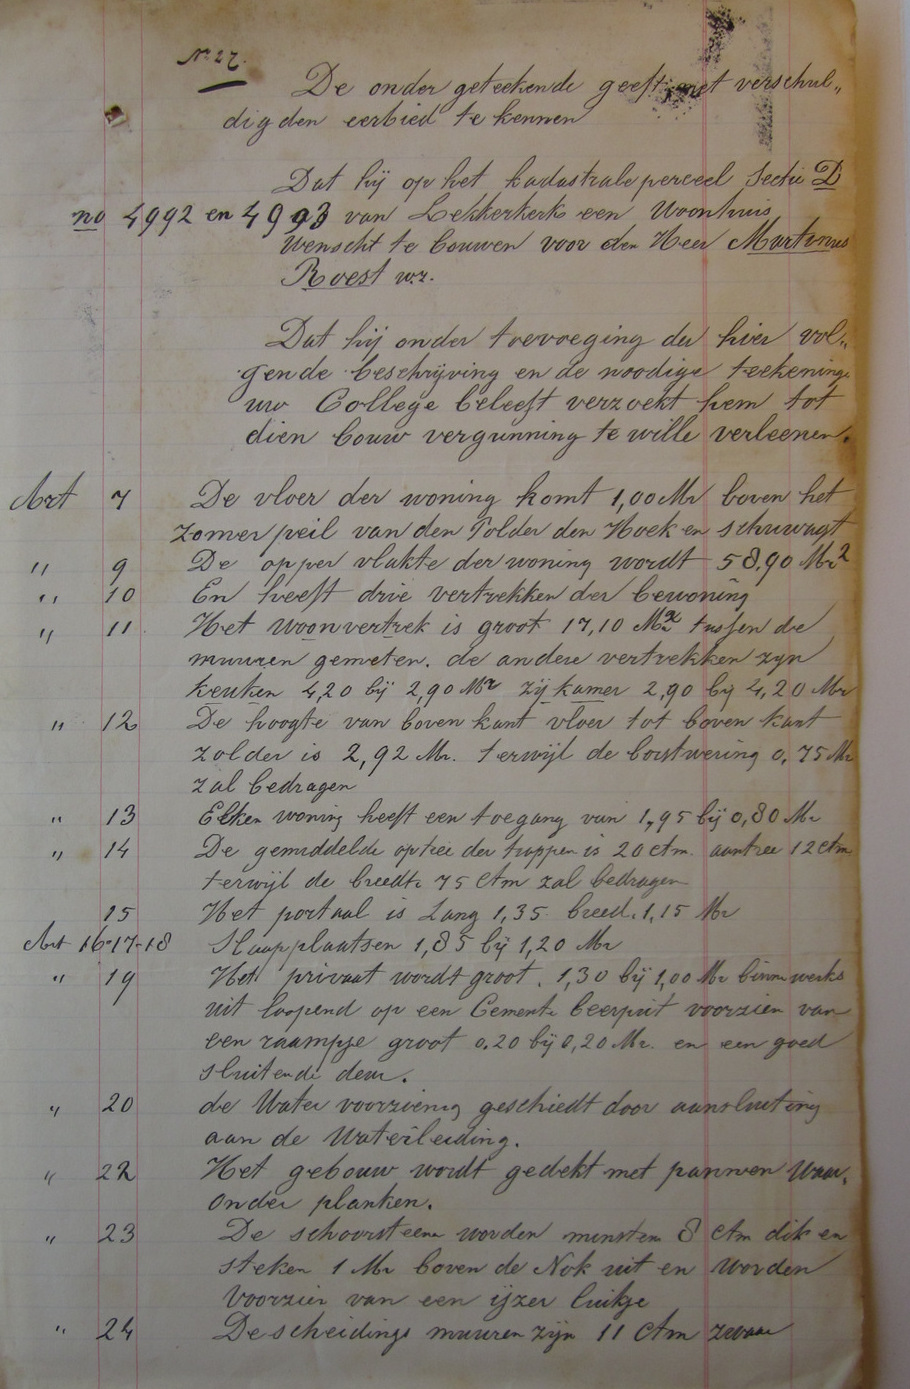 No 27.
De onder geteekende geeft met verschul„
digden eerbied te kennen
Dat hij op het kadastrale perceel Sectie D
no 4992 en 4993 van Lekkerkerk een Woonhuis
Wenscht te bouwen voor den Heer Martinus
Roest wz.
Dat hij onder toevoeging der hier vol„
gende beschrijving en de noodige teekening
uw College beleeft verzoekt hem tot
dien bouw vergunning te wille verleenen.
Art 7 De vloer der woning komt 1,00 Mr boven het
zomerpeil van den Polder den Hoek en schuwagt
„ 9 De opper vlakte der woning wordt 58,90 Mr2
„ 10 En heeft drie vertrekken der bewoning
„ 11 Het woonvertrek is groot 17,10 Mr2 tussen de
muuren gemeten. de andere vertrekken zyn
keuken 4,20 bij 2,90 Mr zijkamer 2,90 by 4,20 Mr
„ 12 De hoogte van boven kant vloer tot boven kant
zolder is 2,92 Mr. terwijl de borstwering 0,75 Mr
zal bedragen
„ 13 Elken woning heeft een toegang van 1,95 bij 0,80 Mr
„ 14 De gemiddelde optree der trappen is 20 ctm. aantree 12 ctm
terwijl de breedte 75 ctm zal bedragen
15 Het portaal is Lang 1,35 breed. 1,15 Mr
Art 16-17-18 Slaapplaatsen 1,85 bij 1,20 Mr
„ 19 Het privaat wordt groot. 1,30 bij 1,00 Mr binnenwerks
uit loopend op een Cemente beerput voorzien van
een raampje groot 0.20 bij 0,20 Mr. en een goed
sluitende deur.
„ 20 de Water voorziening geschiedt door aansluiting
aan de Waterleiding.
„ 22 Het gebouw wordt gedekt met pannen Waar.
onder planken.
„ 23 De schoorsteenen worden minsten 8 ctm dik en
steken 1 Mr boven de Nok uit en worden
voorzien van een ijzer luikje
„ 24 De scheidings muuren zijn 11 ctm zwaar